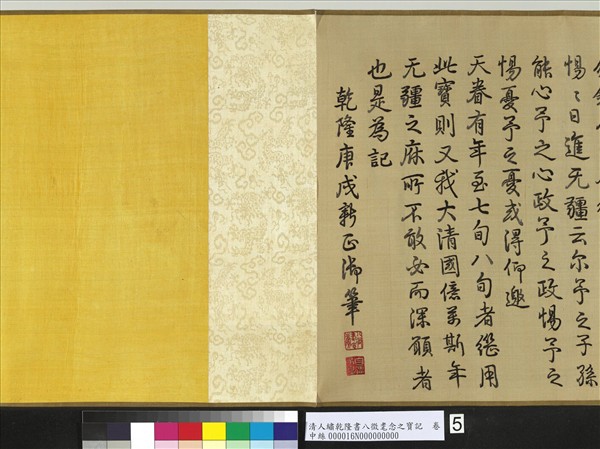 惕惕日進无疆云尔予之子孫
能心予之心政予之政惕予之
惕憂予之憂或得仰邀
天眷有年至七旬八旬者繼用
此寶則又我大清國億萬斯年
无疆之庥所不敢必而深願者
也是為記
乾隆庚戌新正御筆
清人繡乾隆書八徵耄念之寶記 卷
中絲000016N000000000
5